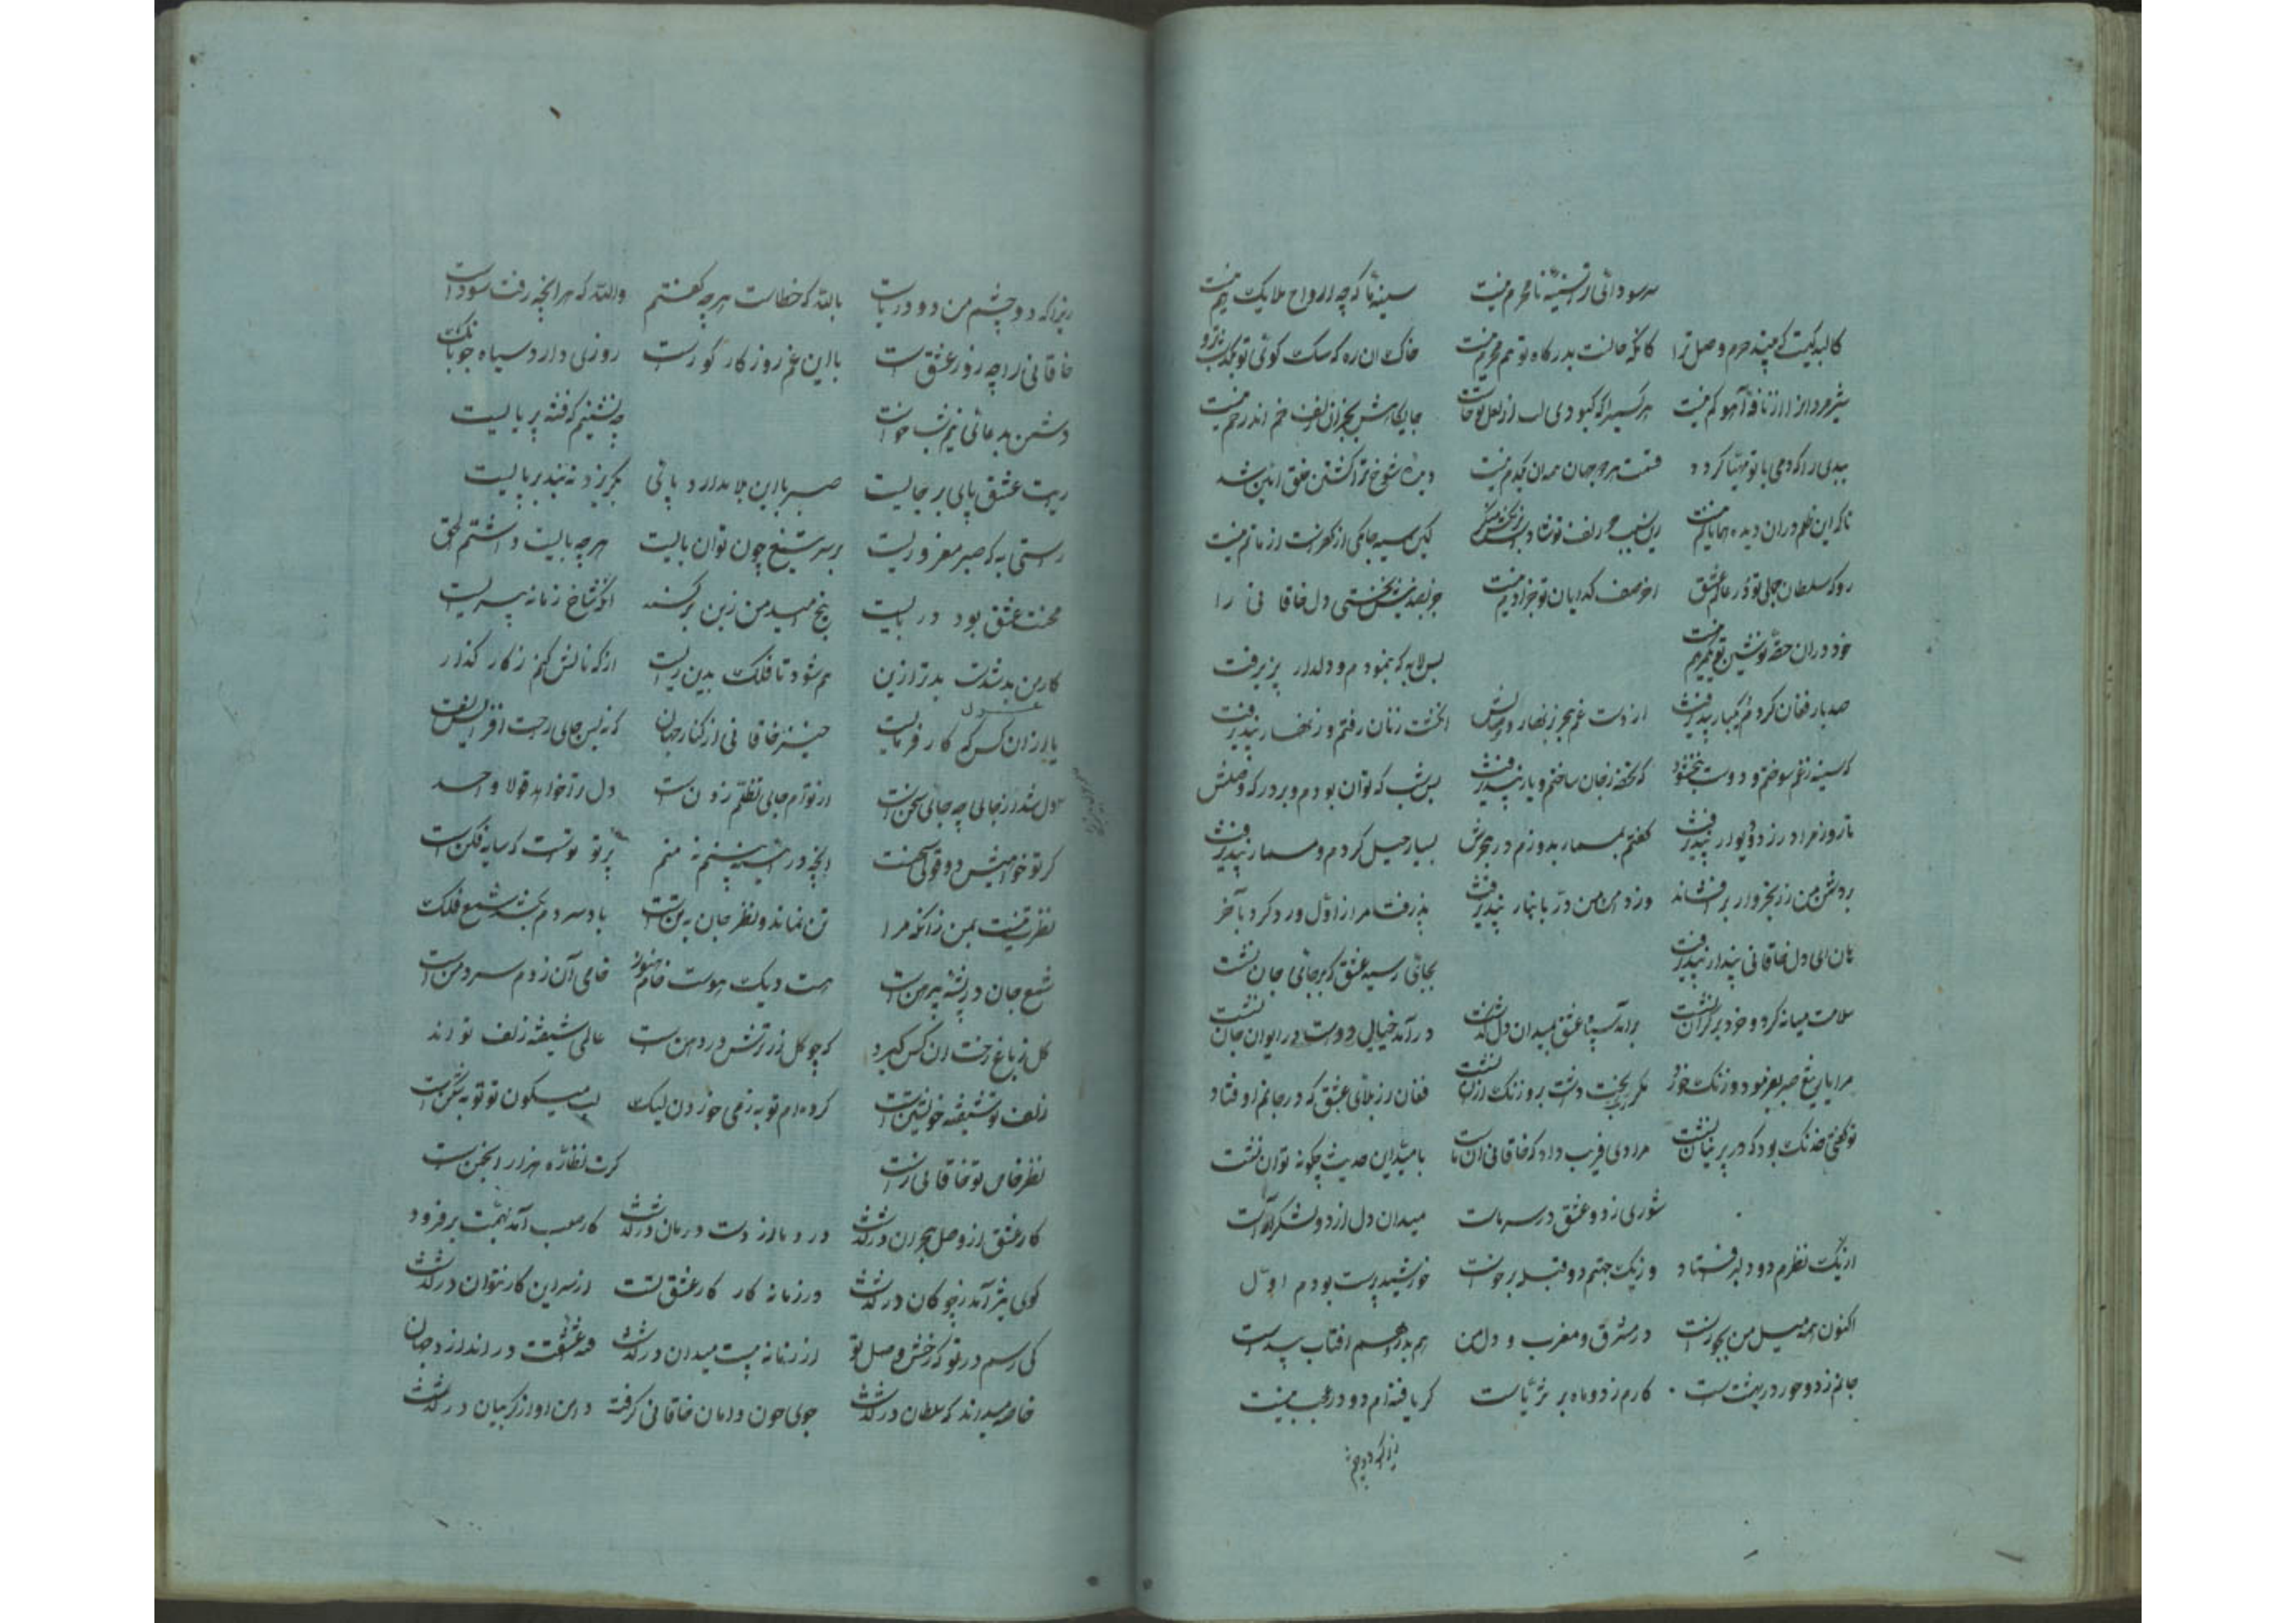 سر سودائی از سینه نامحرم نیست سینه ما که چه ارواح ملایک هم نیست
کالبد کیست که بیند حرم وصل ترا کانکه جانست بدرکاه تو هم محرم نیست خاک آن ره که سک کوی تو
شیر مردانرا از نافه آهو کم نیست هر کسی را که کبودی لب از لعل تو خاست جایکاهش بجز آن زلف خم اندر خم نیست
بیدلی را که دمی با تو مهیا کردد قیمت هر دو جهان همه آن یکدم نیست دیده شوخ ترا کشتن خلق آیین شد
تا که این ظلم در آن دیده لیکن سیه جامکی از کفرست از ماتم نیست
رو که سلطان جمالی تو در عالم عشق آخر صف کدایان تو جز آدم نیست خاقانی را
خود در آن حقه نوشین تو یک مرهم نیست بس لابه که بنمودم و دلدار نپذیرفت
صد بار فغان کردم و یکبار نپذیرفت از دست غم هجر بزنهار وصالش انکشت زنان رفتم و زنهار نپذیرفت
که سینه ز غم سوختم و دوست نبخشود که تحفه ز جان ساختم و یار نپذیرفت بس شب که نوان بودم و بر درکه وصلش
تا روز مرا در زد و دیوار نپذیرفت کفتم بمسمار بدوزم در هجرش بسیار حیل کردم و مسمار نپذیرفت
بر دشمن من زر بخروار برافشاند وز دامن من در بانبار نپذیرفت پذرفت مرا از اول و رد کرد بآخر
هان ای دل خاقانی پندار نپذیرفت بجائی رسید عشق که بر جای جان نشست
سلامت میانه کرد و خود بر کران نشست برآمد سپاه عشق بمیدان دل کذشت درآمد خیال دوست در ایوان جان نشست
مرا پای صبر فرمود و زنک خورد نکر بخت داشت بر و زنک از آن نشست فغان از بلای عشق که در جانم اوفتاد
تو کفتی خدنک بود که در پرنیان نشست مرا دی فریب داد که خاقانی آن ماست بامید این حدیث چکونه توان نشست
شوری ز دو عشق در سر ماست میدان دل از دو لشکر آراست
از یک نظرم دو دلبر افتاد وز یک جهتم دو قبله برخاست خورشید پرست بودم اول
اکنون همه میل من بجوزاست در مشرق و مغرب و دل من هم بدر هم افتاب پیداست
جانم ز دو حور در بهشت است کارم ز دو ماه بر ثریاست کر یافته ام دو در عجب نیست
زیرا که دو چشم
زیرا که دو چشم من دو دریاست بالله که خطاست هر چه کفتم والله که هر آنچه رفت سوداست
خاقانی را چه روز عشق است با این غم روزکار کور است روزی دارد سیاه
دشمن بد عائی نیم شب خواست چه نشینم که فتنه بر پائیست
رایت عشق پای بر جائیست صبر با این بلا ندارد پای بکریزد نه بند بر پائیست
راستی به که صبر معذوریست بر سر تیغ چون توان پائیست هر چه بایست داشتم الحق
محنت عشق بود دربایست بیخ امید من ز بن برکند آنکه شاخ زمانه پیرایست
کار من بد شدست بدتر ازین هم شود تا فلک بدین رایست از که نالش کنم ز کار کذر
یا از آن کس که کار فرمایست خیز خاقانی از کنار جهان که نه بس جای راحت افزایست
دل شد از جای چه جای سخن است از توام جای تظلم زدن است دل را تو خواهد قولا واحد
کر تو خواهیش دو قولی سخنست آنچه در نشینم نه منم پرتو تست که سایه فکن است
نظرت نیست بمن زانکه مرا تن نماند و نظر جان به تن است باد سردم بکشد شمع فلک
شمع جان در پیش مرد من است هست دیک هوست خام هنوز خامی آن ز دم سرد من است
کل ز باغ رخت آن کس کیرد که چو کل زر ترش در دهن است عالمی شیفته زلف تو اند
زلف تو شیفته خویشتن است کرده ام توبه ز می خوردن لیک لب میکون تو توبه شکن است
نظر خاص تو خاقانی راست کرت نظاره هزار انجمن است
کار عشق از وصل و هجران درکذشت درد ما از دست درمان درکذشت کار صعب آمد بهمت برفزود
کوی تیز آمد ز چوکان درکذشت در زمانه کار کار عشق تست از سر این کار نتوان درکذشت
کی رسم در تو که رخش وصل تو از زمانه بیست میدان درکذشت فتنه عشقت درانداز دو جهان
خاصه میدانند که سلطان درکذشت جوی خون دامان خاقانی کرفته دامن او از کریبان درکذشت